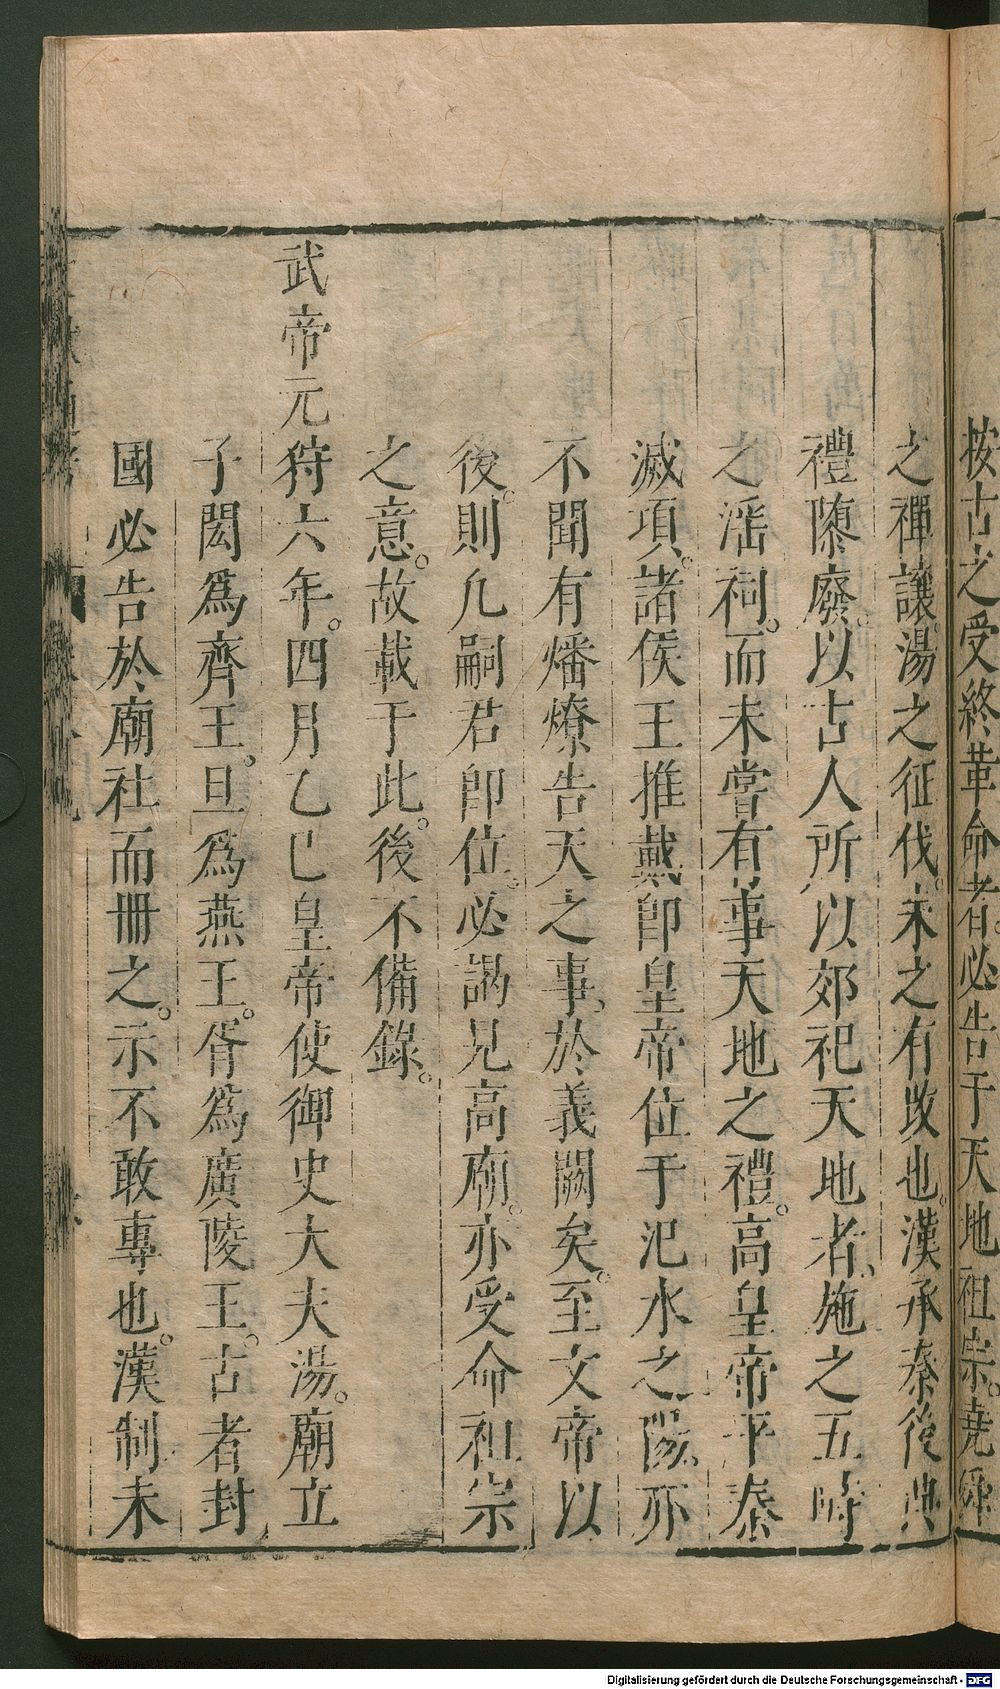 按古之受終革命者。必告于天地祖宗。堯舜
之禪讓。湯之征伐。未之有改也。漢承秦後典
禮隳廢。以古人所以郊祀天地者、施之五畤
之淫祠。而未嘗有事天地之禮。高皇帝平秦
滅項。諸侯王推戴卽皇帝位于汜水之陽。亦
不聞有燔燎告天之事、於義闕矣。至文帝以
後。則凡嗣君卽位。必謁見高廟。亦受命祖宗
之意。故載于此。後不備錄。
武帝元狩六年。四月乙巳皇帝使御史大夫湯。廟立
子閎爲齊王。旦爲燕王。胥爲廣陵王。古者封
國必告於廟社而冊之。示不敢專也。漢制未
Digitalisierung gefördert durch die Deutsche Forschungsgemeinschaft - DFG